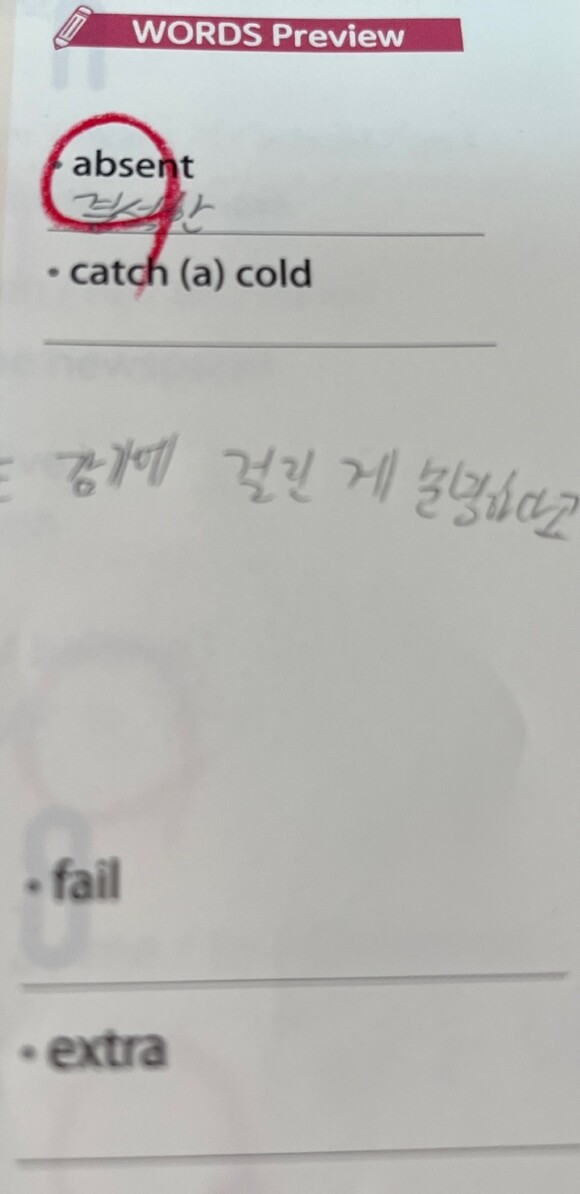 WORDS Preview
• absent
결석한
• catch (a) cold
감기에 걸린 게 분명하다고
• fail
• extra